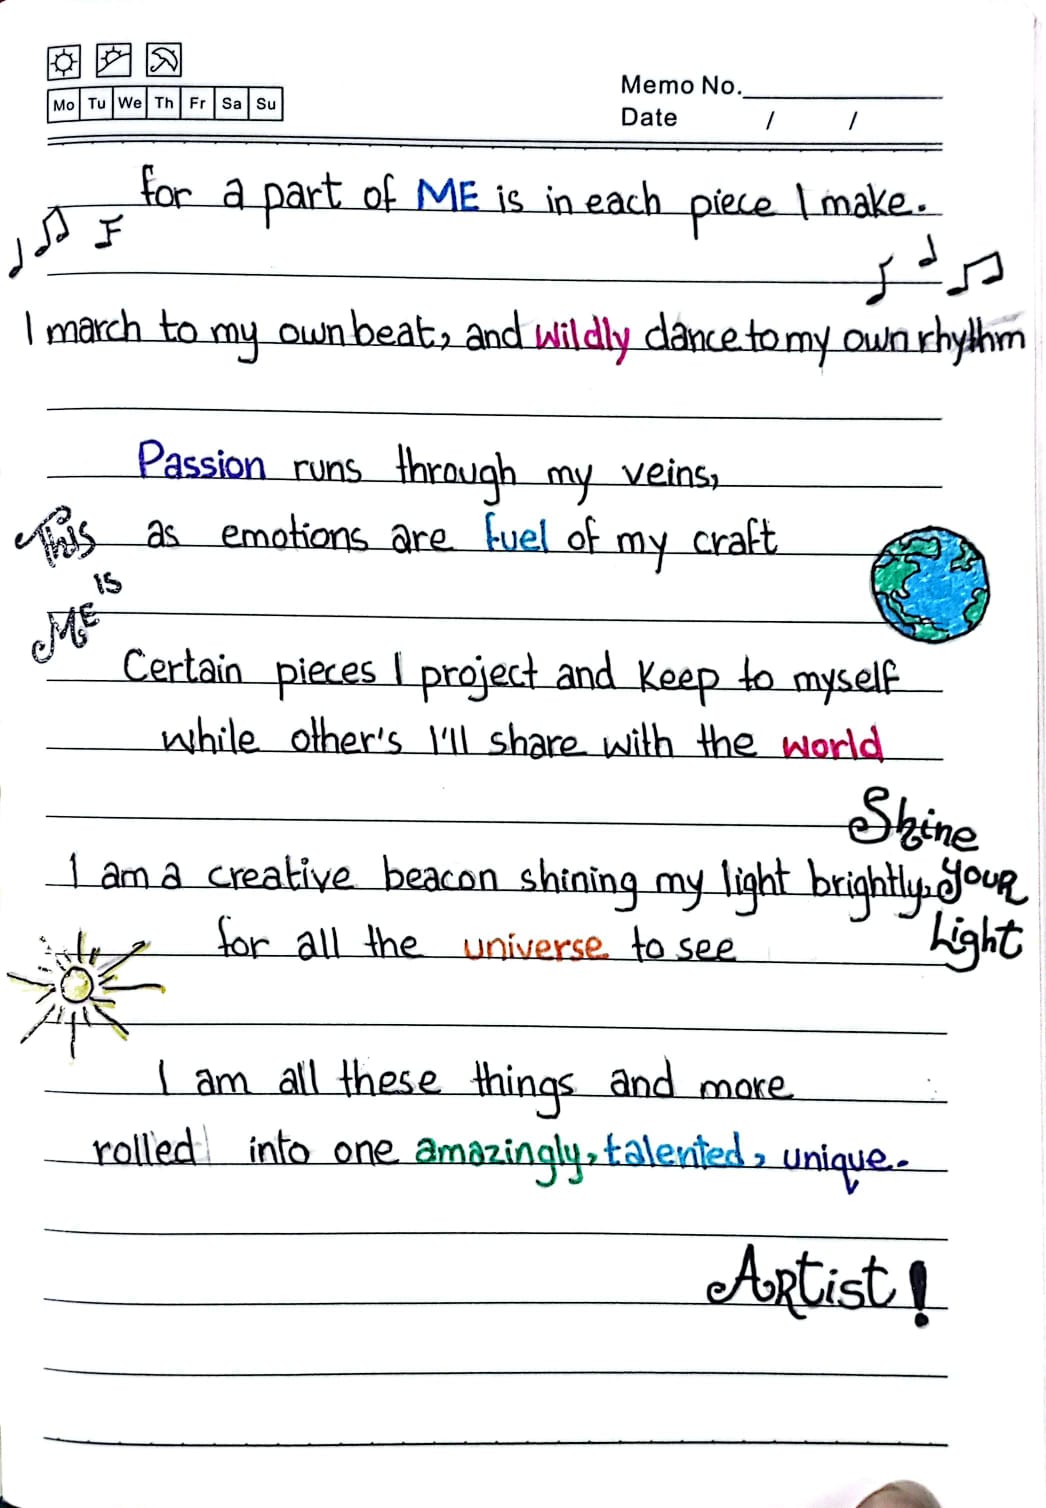 Memo No.
Mo Tu We Th Fr Sa Su
Date / /
for a part of ME is in each piece I make.
I march to my own beat, and wildly dance to my own rhythm
Passion runs through my veins,
This as emotions are fuel of my craft
is
ME
Certain pieces I project and keep to myself
while other's I'll share with the world
Shine
I am a creative beacon shining my light brightly, your
for all the universe to see Light
I am all these things and more
rolled into one amazingly, talented, unique.
Artist!